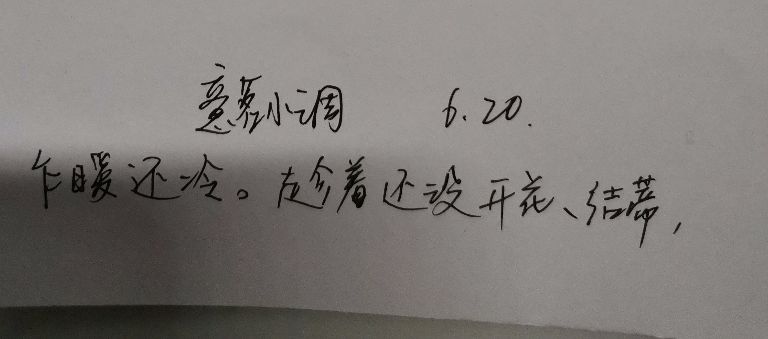 意慕小调 6.20.
乍暖还冷。趁着还没开花、结蒂,